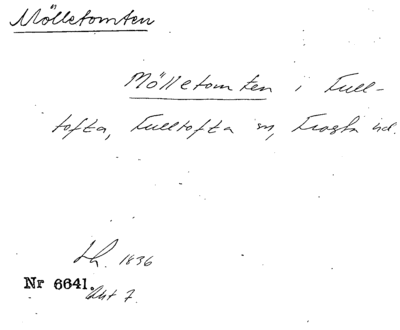 Mölletomten
Mölletomten i Full-
tofta, Fulltofta sn, Frosta hd.
Lh. 1836
Nr 6641.
Akt 7.